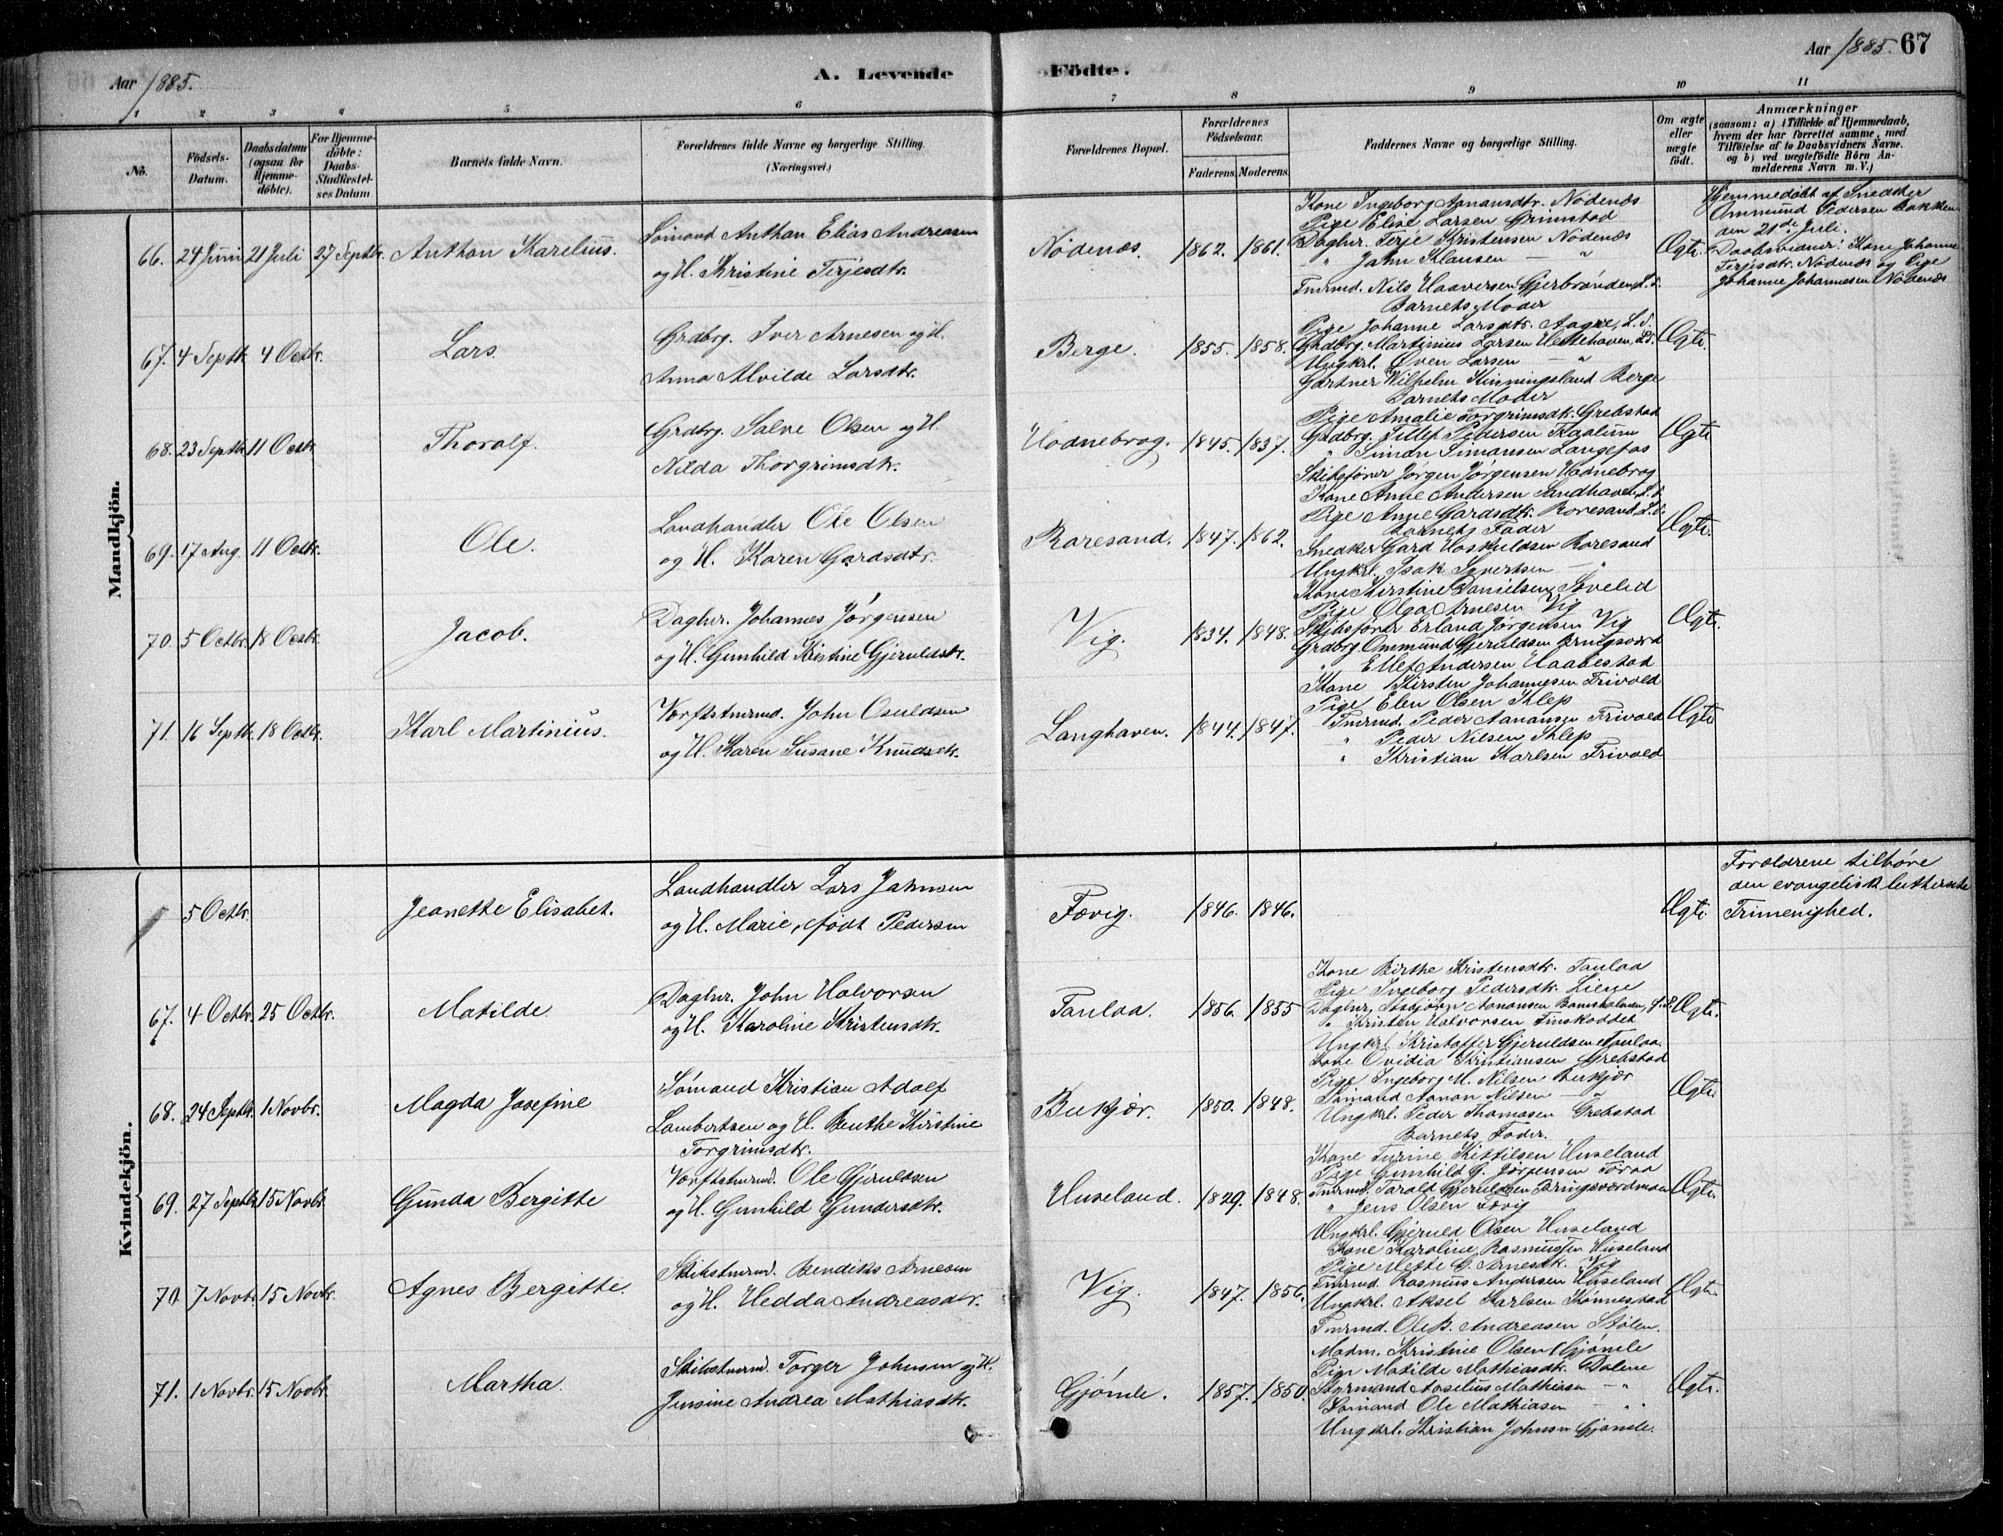 Aar 1885.
A. Levende
Födte.
Aar 1885. 67
1 2 3 4 5 6 7 8 9 10 11
No.
Födsels-Datum.
Daabsdatum (ogsaa for Hjemme-döbte).
For Hjemme-döbte: Daabs-Stadfæstel-ses Datum
Barnets fulde Navn.
Forældrenes fulde Navne og borgerlige Stilling.
(Næringsvei.)
Forældrenes Bopæl.
Forældrenes Födselsaar.
Faderens. Moderens.
Faddernes Navne og borgerlige Stilling.
Om ægte eller uægte födt.
Anmærkninger
(saasom: a) i Tilfælde af Hjemmedaab, hvem der har forrettet samme, med Tilföielse af to Daabsvidners Navne. og b) ved uægtefödte Börn Anmelderens Navn m.V.)
Mandkjön.
66. 24 Juni 21 Juli 27 Septbr. Anthon Karelius.
Sömand Anthon Elias Andreasen
og H. Kristine Terjesdtr.
Nödenæs. 1862. 1861.
Kone Ingeborg Aanansdtr. Nödenæs
Pige Elise Larsen Grimstad
Daglnr. Terje Kristensen Nödenæs
" Jahn Klausen — "
Tmrmd. Nils Haaversen Gjerbrönden, L.S.
Barnets Moder
Ægte.
Hjemmedöbt af Snedker
Ommund Pedersen Bakken
den 21de Juli.
Daabsvidner: Kone Johanne
Terjesdtr. Nödenæs og Pige
Johanne Johannesen Nödenæs
67. 4 Septbr. 4 Octbr. Lars.
Grdbrg. Iver Arnesen og H.
Anna Alvilde Larsdtr.
Berge. 1855. 1858.
Pige Johanne Larsdtr. Aagre, L.S.
Grdbrg. Martinius Larsen Hestehaven, L.S.
Ungkrl. Öven Larsen — "
Gartner Wilhelm Kinningsland Berge
Barnets Moder
Ægte.
68. 23 Septbr. 11 Octbr. Thoralf.
Grdbrg. Salve Olsen og H.
Nilda Thorgrimsdtr.
Hodnebrog. 1845. 1837.
Pige Amalie Torgrimsdtr. Grebstad
Grdbrg. Tellef Pedersen Kaalum
" Simon Simonsen Langefos
Skibsförer Jörgen Jörgensen Hodnebrog
Kone Anne Andersen Sandhaven, L.S.
Ægte
69. 17 Aug. 11 Octbr. Ole.
Landhandler Ole Olsen
og H. Karen Gardsdtr.
Roresand. 1847. 1862.
Pige Anne Gardsdtr. Roresand, L.S.
Barnets Fader
Snedker Gard Hoskuldsen Roresand
Ungkrl. Isak Sivertsen — "
Kone Kirstine Danielsen Sevelid
Ægte.
70. 5 Octbr. 18 Octbr. Jacob.
Daglnr. Johannes Jörgensen
og H. Gunhild Kristine Gjeruldsdtr.
Vig. 1834. 1848.
Pige Olga Arnesen Vig
Skibsförer Erland Jörgensen Vig
Grdbrg. Ommund Gjeruldsen Bringsværd
" Ellef Andersen Haabestad
Kone Kirsten Johannesen Frivold
Ægt.
71. 16 Septbr. 18 Octbr. Karl Martinius.
Værftstmrmd. John Osuldsen
og H. Karen Susane Knudsdtr.
Langhaven. 1844. 1847.
Pige Elen Olsen Sklep
Tmrmd. Peder Aanonsen Frivold
" Peder Nilsen Sklep
" Kristian Karlsen Frivold
Ægte
Kvindekjön.
5 Octbr. Jeanette Elisabet.
Landhandler Lars Jahnsen
og H. Marie, født Pedersen
Fævig. 1846. 1846.
Ægte.
Forældrene tilhöre
den evangelisk lutherske
Frimenighed.
67. 4 Octbr. 25 Octbr. Matilde
Daglnr. John Halvorsen
og H. Karoline Kristensdtr.
Taulaa. 1856. 1855
Kone Birthe Kristensdtr. Taulaa
Pige Ingeborg Pedersdtr. Liene
Daglnr. Asbjörn Aanonsen
" Kristen Halvorsen Finskoddet
Ungkrl. Kristoffer Gjeruldsen Taulaa.
Ægte.
68. 24 Septbr. 1 Novbr. Magda Josefine
Sömand Kristian Adolf
Lambertsen og H. Benthe Kirstine
Torgrimsdtr.
Bukjær. 1850. 1848.
Kone Ovidia Kristiansen Grebstad
Pige Ingeborg M. Nilsen Berkjær
Sömand Aanon Nilsen — "
Ungkrl. Peder Thomasen Grebstad
Barnets Fader.
Ægte.
69. 27 Septbr. 15 Novbr. Gunda Bergitte
Værftstmrmd. Ole Gjeruldsen
og H. Gunhild Gundersdtr.
Huseland. 1829. 1848.
Kone Turine Kittilsen Huseland
Pige Gunhild G. Jörgensen Toraa
Tmrmd. Tarald Gjeruldsen Bringsværdmoen
" Jens Olsen Fevig
Ungkrl. Gjeruld Olsen Huseland
Ægte.
70. 7 Novbr. 15 Novbr. Agnes Bergitte.
Skibstmrmd. Bendiks Arnesen
og H. Hedda Andreasdtr.
Vig. 1847. 1856.
Kone Karoline Rasmussen Huseland
Pige Mette C. Arnesdtr. Vig
Tmrmd. Rasmus Andersen Huseland
Ungkrl. Aksel Karlsen Könnestad
Tmrmd. Ole B. Andreasen Stölen.
Ægte.
71. 1 Novbr. 15 Novbr. Martha.
Skibstmrmd. Torger Johnsen og H.
Jensine Andrea Mathiasdtr.
Gjömle. 1857. 1850.
Madm. Kristine Olsen Gjömle
Pige Matilde Mathiasdtr. Dalene
Styrmand Aaselius Mathiasen — "
Sömand Ole Mathiasen — "
Ungkrl. Kristian Johnsen Gjömle.
Ægte.